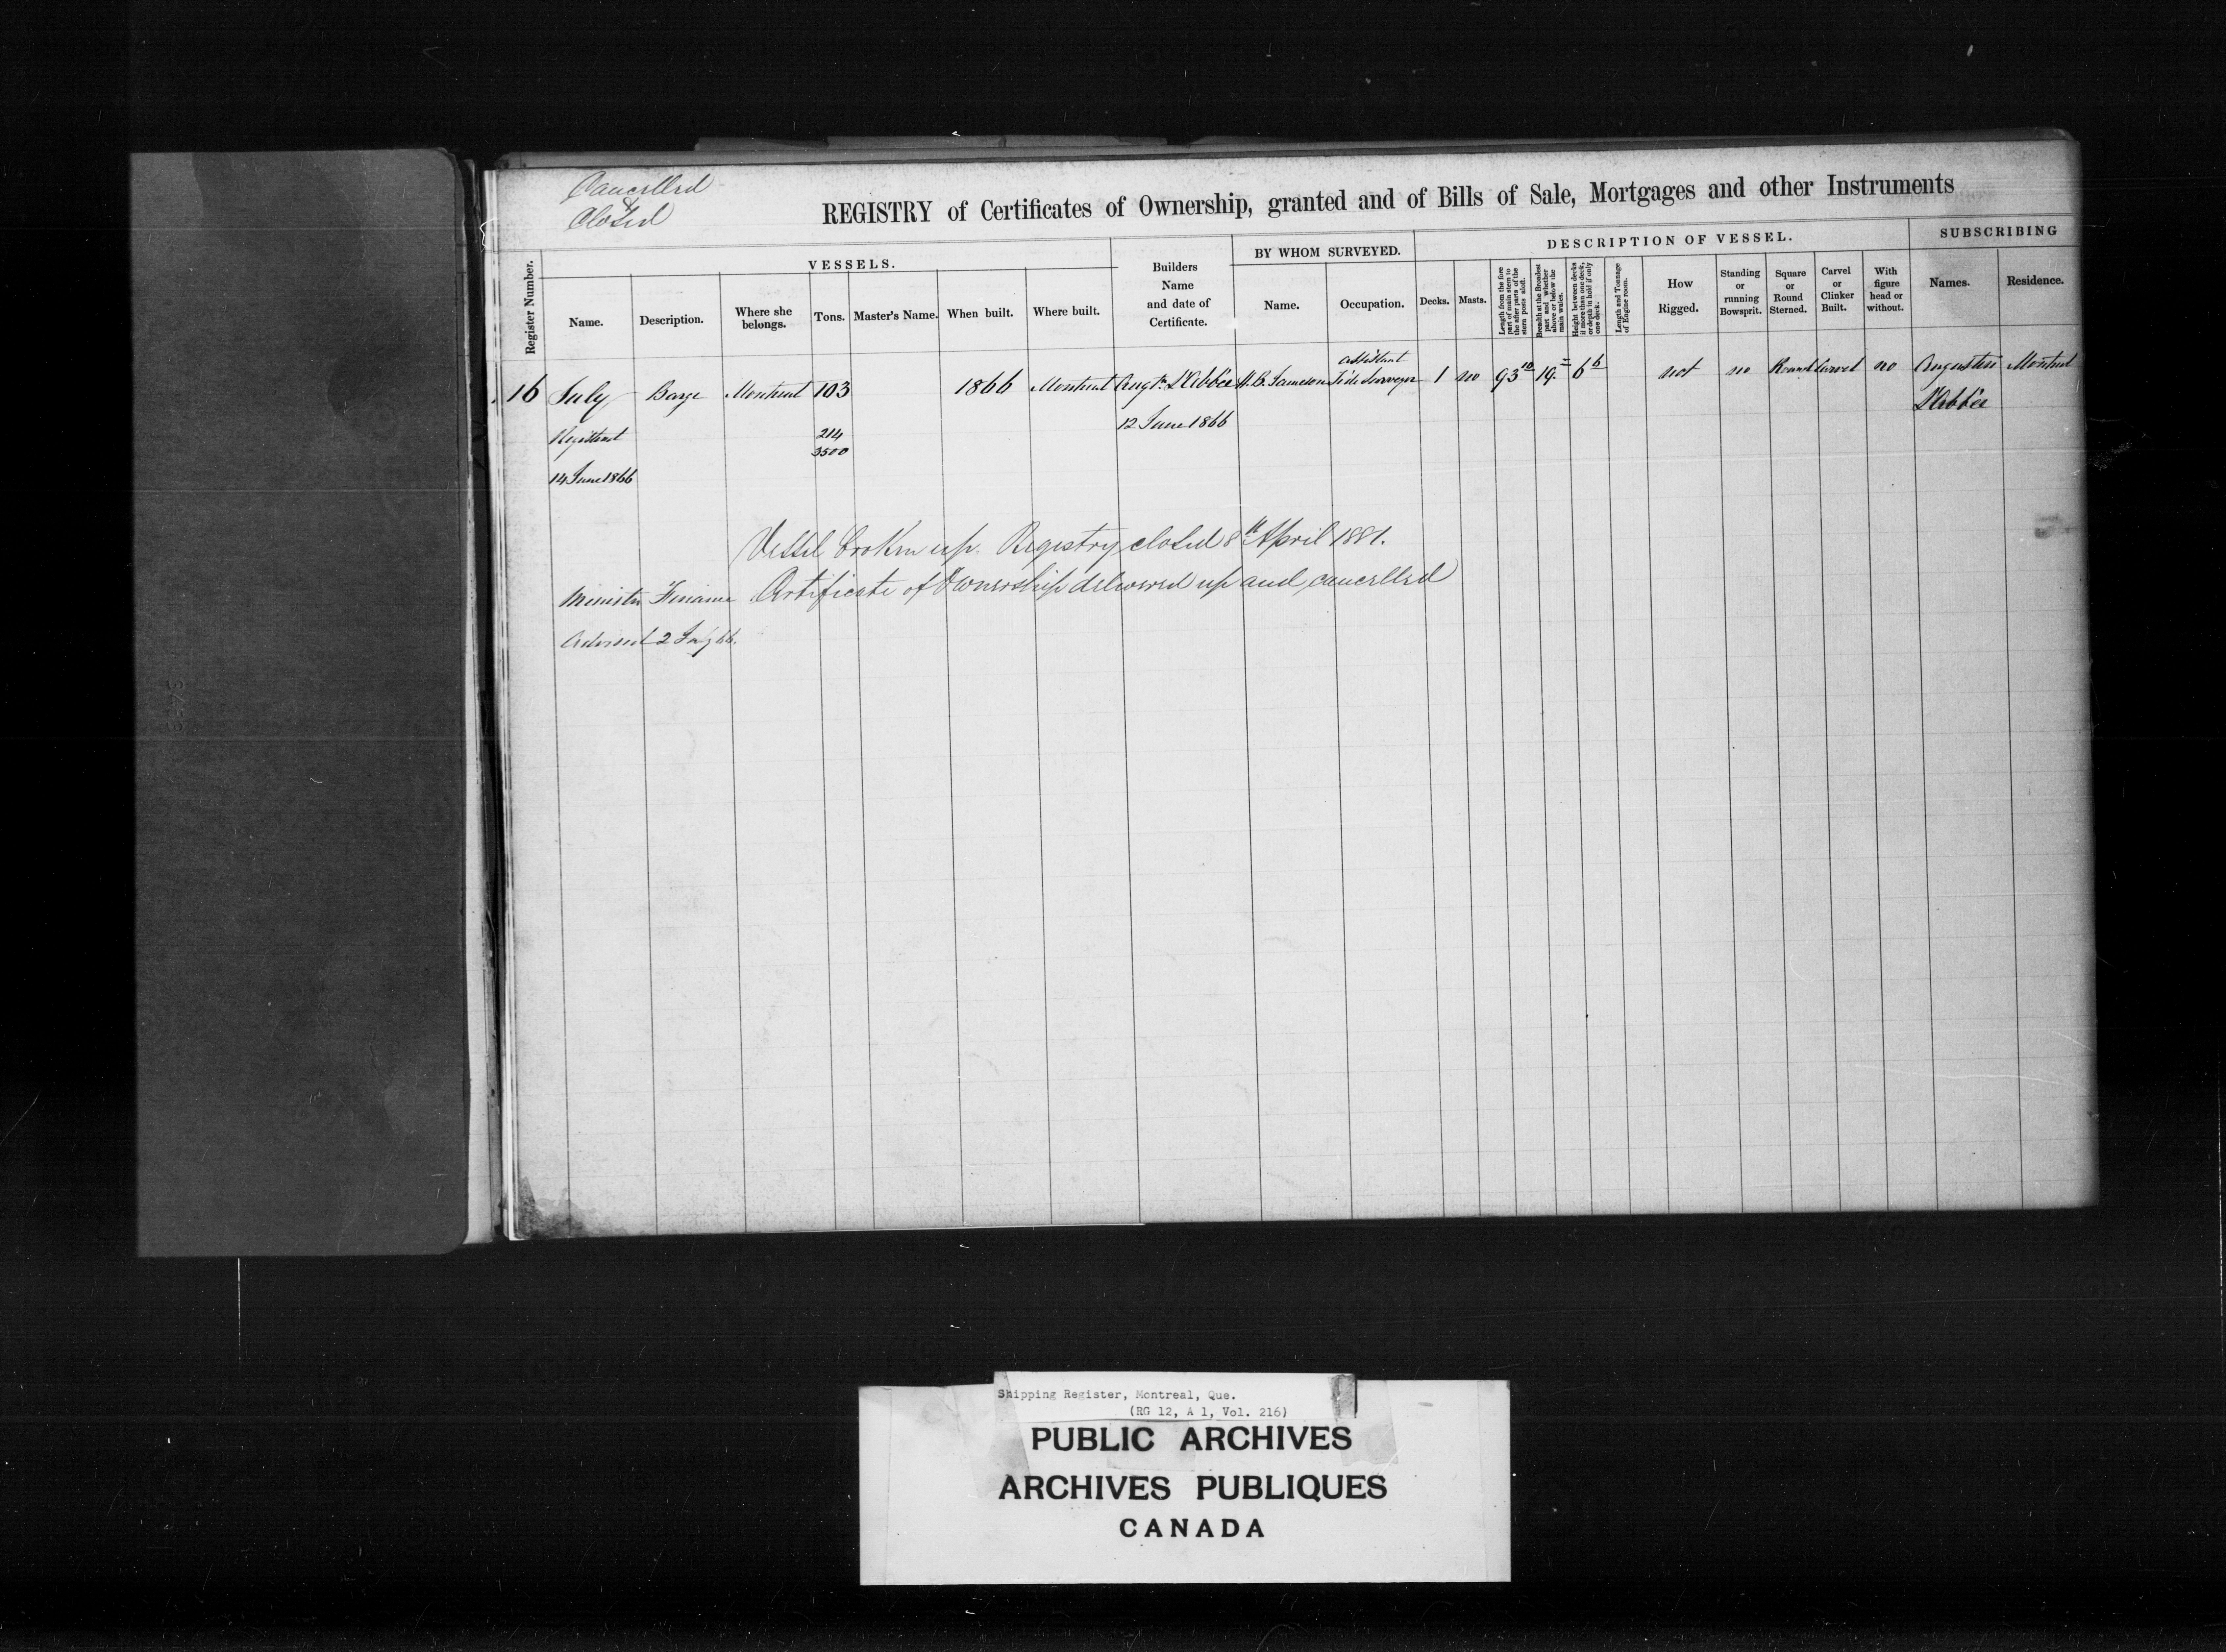 Cancelled
&
Closed
REGISTRY of Certificates of Ownership, granted and of Bills of Sale, Mortgages and other Instruments
Register Number.
VESSELS.
Name.
Description.
Where she belongs.
Tons.
Master's Name.
When built.
Where built.
Builders Name and date of Certificate.
BY WHOM SURVEYED.
Name.
Occupation.
DESCRIPTION OF VESSEL.
Decks.
Masts.
Length from the fore part of main stem to the after parts of the stern posts aloft.
Breadth at the Broadest part and whether above or below the main wales.
Height between decks if more than one deck, or depth in hold if only one deck.
Length and Tonnage of Engine room.
How Rigged.
Standing or running Bowsprit.
Square or Round Sterned.
Carvel or Clinker Built.
With figure head or without.
SUBSCRIBING
Names.
Residence.
16 July Barge Montreal 103 1866 Montreal Augtn L'Abbée W.B. Jameson assistant Tide Surveyor 1 no 93 10 19 = 6 6 not no Round Carvel no Augustin Montreal
L'Abbée
Registered 214 12 June 1866
3500
14 June 1866
Vessel broken up. Registry closed 8th April 1881.
Minister Finance Certificate of Ownership delivered up and cancelled
Advised 2 July 66.
Shipping Register, Montreal, Que.
(RG 12, A 1, Vol. 216)
PUBLIC ARCHIVES
ARCHIVES PUBLIQUES
CANADA